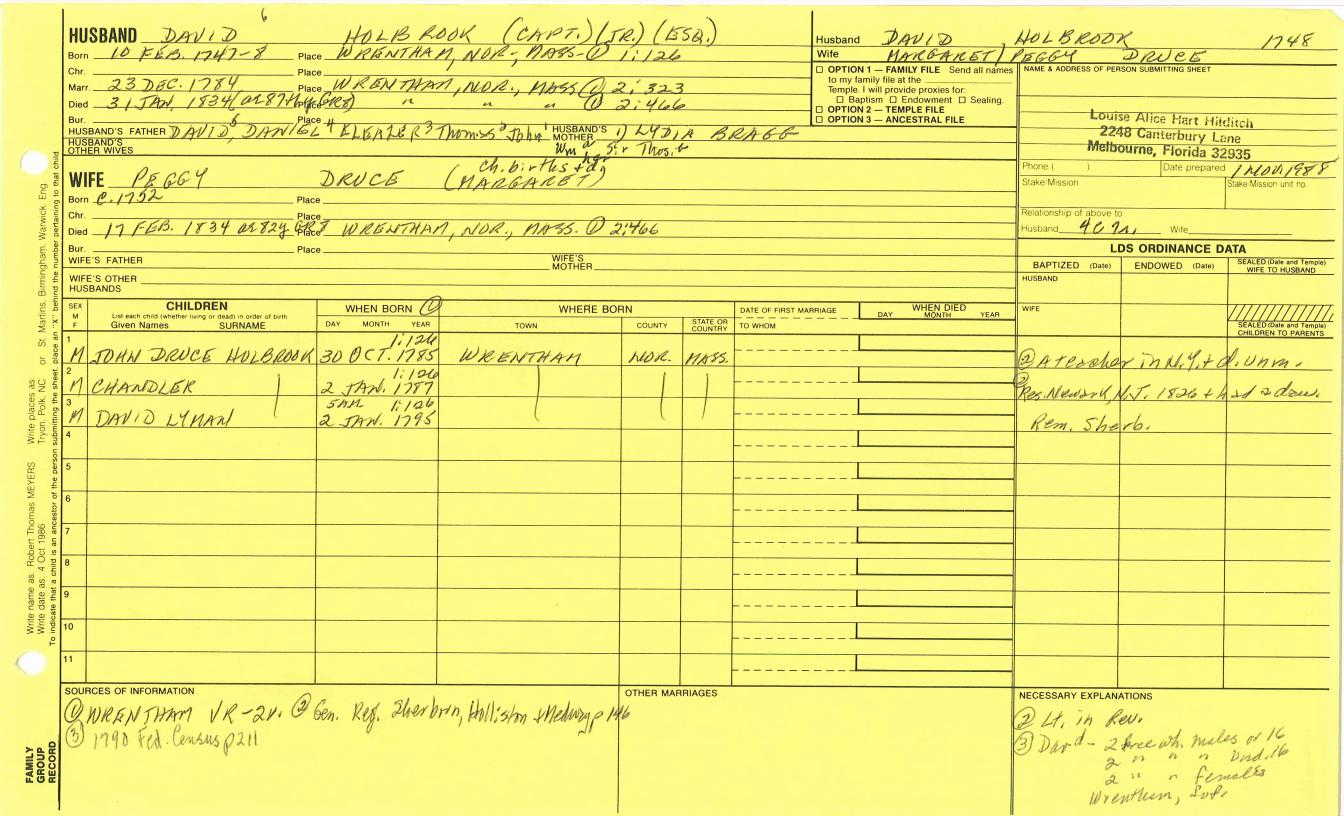 6
HUSBAND DAVID HOLBROOK (CAPT.) (JR.) (ESQ.)
Born 10 FEB. 1747-8 Place WRENTHAM, NOR., MASS. ① 1:126
Chr. Place
Marr. 23 DEC. 1784 Place WRENTHAM, NOR., MASS ① 2:323
Died 31 JAN. 1834 (ae 87thy GR8) Place " " " ① 2:466
Bur. Place
HUSBAND'S FATHER DAVID,5 DANIEL4 ELEAZER3 Thomas2 John1 HUSBAND'S MOTHER 1) LYDIA BRAGG
HUSBAND'S OTHER WIVES
Husband DAVID HOLBROOK 1748
Wife MARGARET/PEGGY DRUCE
☐ OPTION 1 — FAMILY FILE Send all names
to my family file at the
Temple. I will provide proxies for:
☐ Baptism ☐ Endowment ☐ Sealing.
☐ OPTION 2 — TEMPLE FILE
☐ OPTION 3 — ANCESTRAL FILE
NAME & ADDRESS OF PERSON SUBMITTING SHEET
Louise Alice Hart Hitditch
2248 Canterbury Lane
Melbourne, Florida 32935
Phone ( ) Date prepared 1 NOV. 1988
Stake/Mission Stake/Mission unit no.
Relationship of above to
Husband Wife
WIFE PEGGY DRUCE (MARGARET) ch. births +
Born c.1752 Place
Chr. Place
Died 17 FEB. 1834 ae 82y GR8 Place WRENTHAM, NOR., MASS. ① 2:466
Bur. Place
WIFE'S FATHER WIFE'S MOTHER
WIFE'S OTHER HUSBANDS
LDS ORDINANCE DATA
BAPTIZED (Date) ENDOWED (Date) SEALED (Date and Temple) WIFE TO HUSBAND
HUSBAND
WIFE
SEALED (Date and Temple) CHILDREN TO PARENTS
SEX M F CHILDREN WHEN BORN ① WHERE BORN DATE OF FIRST MARRIAGE WHEN DIED
List each child (whether living or dead) in order of birth
Given Names SURNAME DAY MONTH YEAR TOWN COUNTY STATE OR COUNTRY TO WHOM DAY MONTH YEAR
1 1:126
M JOHN DRUCE HOLBROOK 30 OCT. 1785 WRENTHAM NOR. MASS. ② A teacher in N.Y. + d. unm.
2 1:126
M CHANDLER 2 JAN. 1787 ② Res. Newark, N.J. 1826 + had 2 daus.
3 5AM 1:126
M DAVID LYMAN 2 JAN. 1795 Rem. Sherb.
4
5
6
7
8
9
10
11
SOURCES OF INFORMATION
① WRENTHAM VR-2v. ② Gen. Reg. Sherborn, Holliston + Medway p 146
③ 1790 Fed. Census p 211
OTHER MARRIAGES
NECESSARY EXPLANATIONS
② Lt. in Rev.
③ David - 2 free wh. males ov 16
2 " " " Und. 16
2 " " females
Wrentham, Suf.
Write name as: Robert Thomas MEYERS Write places as: Tryon, Polk, NC or St. Martins, Birmingham, Warwick, Eng.
Write date as: 4 Oct 1986
To indicate that a child is an ancestor of the person submitting the sheet, place an "X" behind the number pertaining to that child
FAMILY
GROUP
RECORD